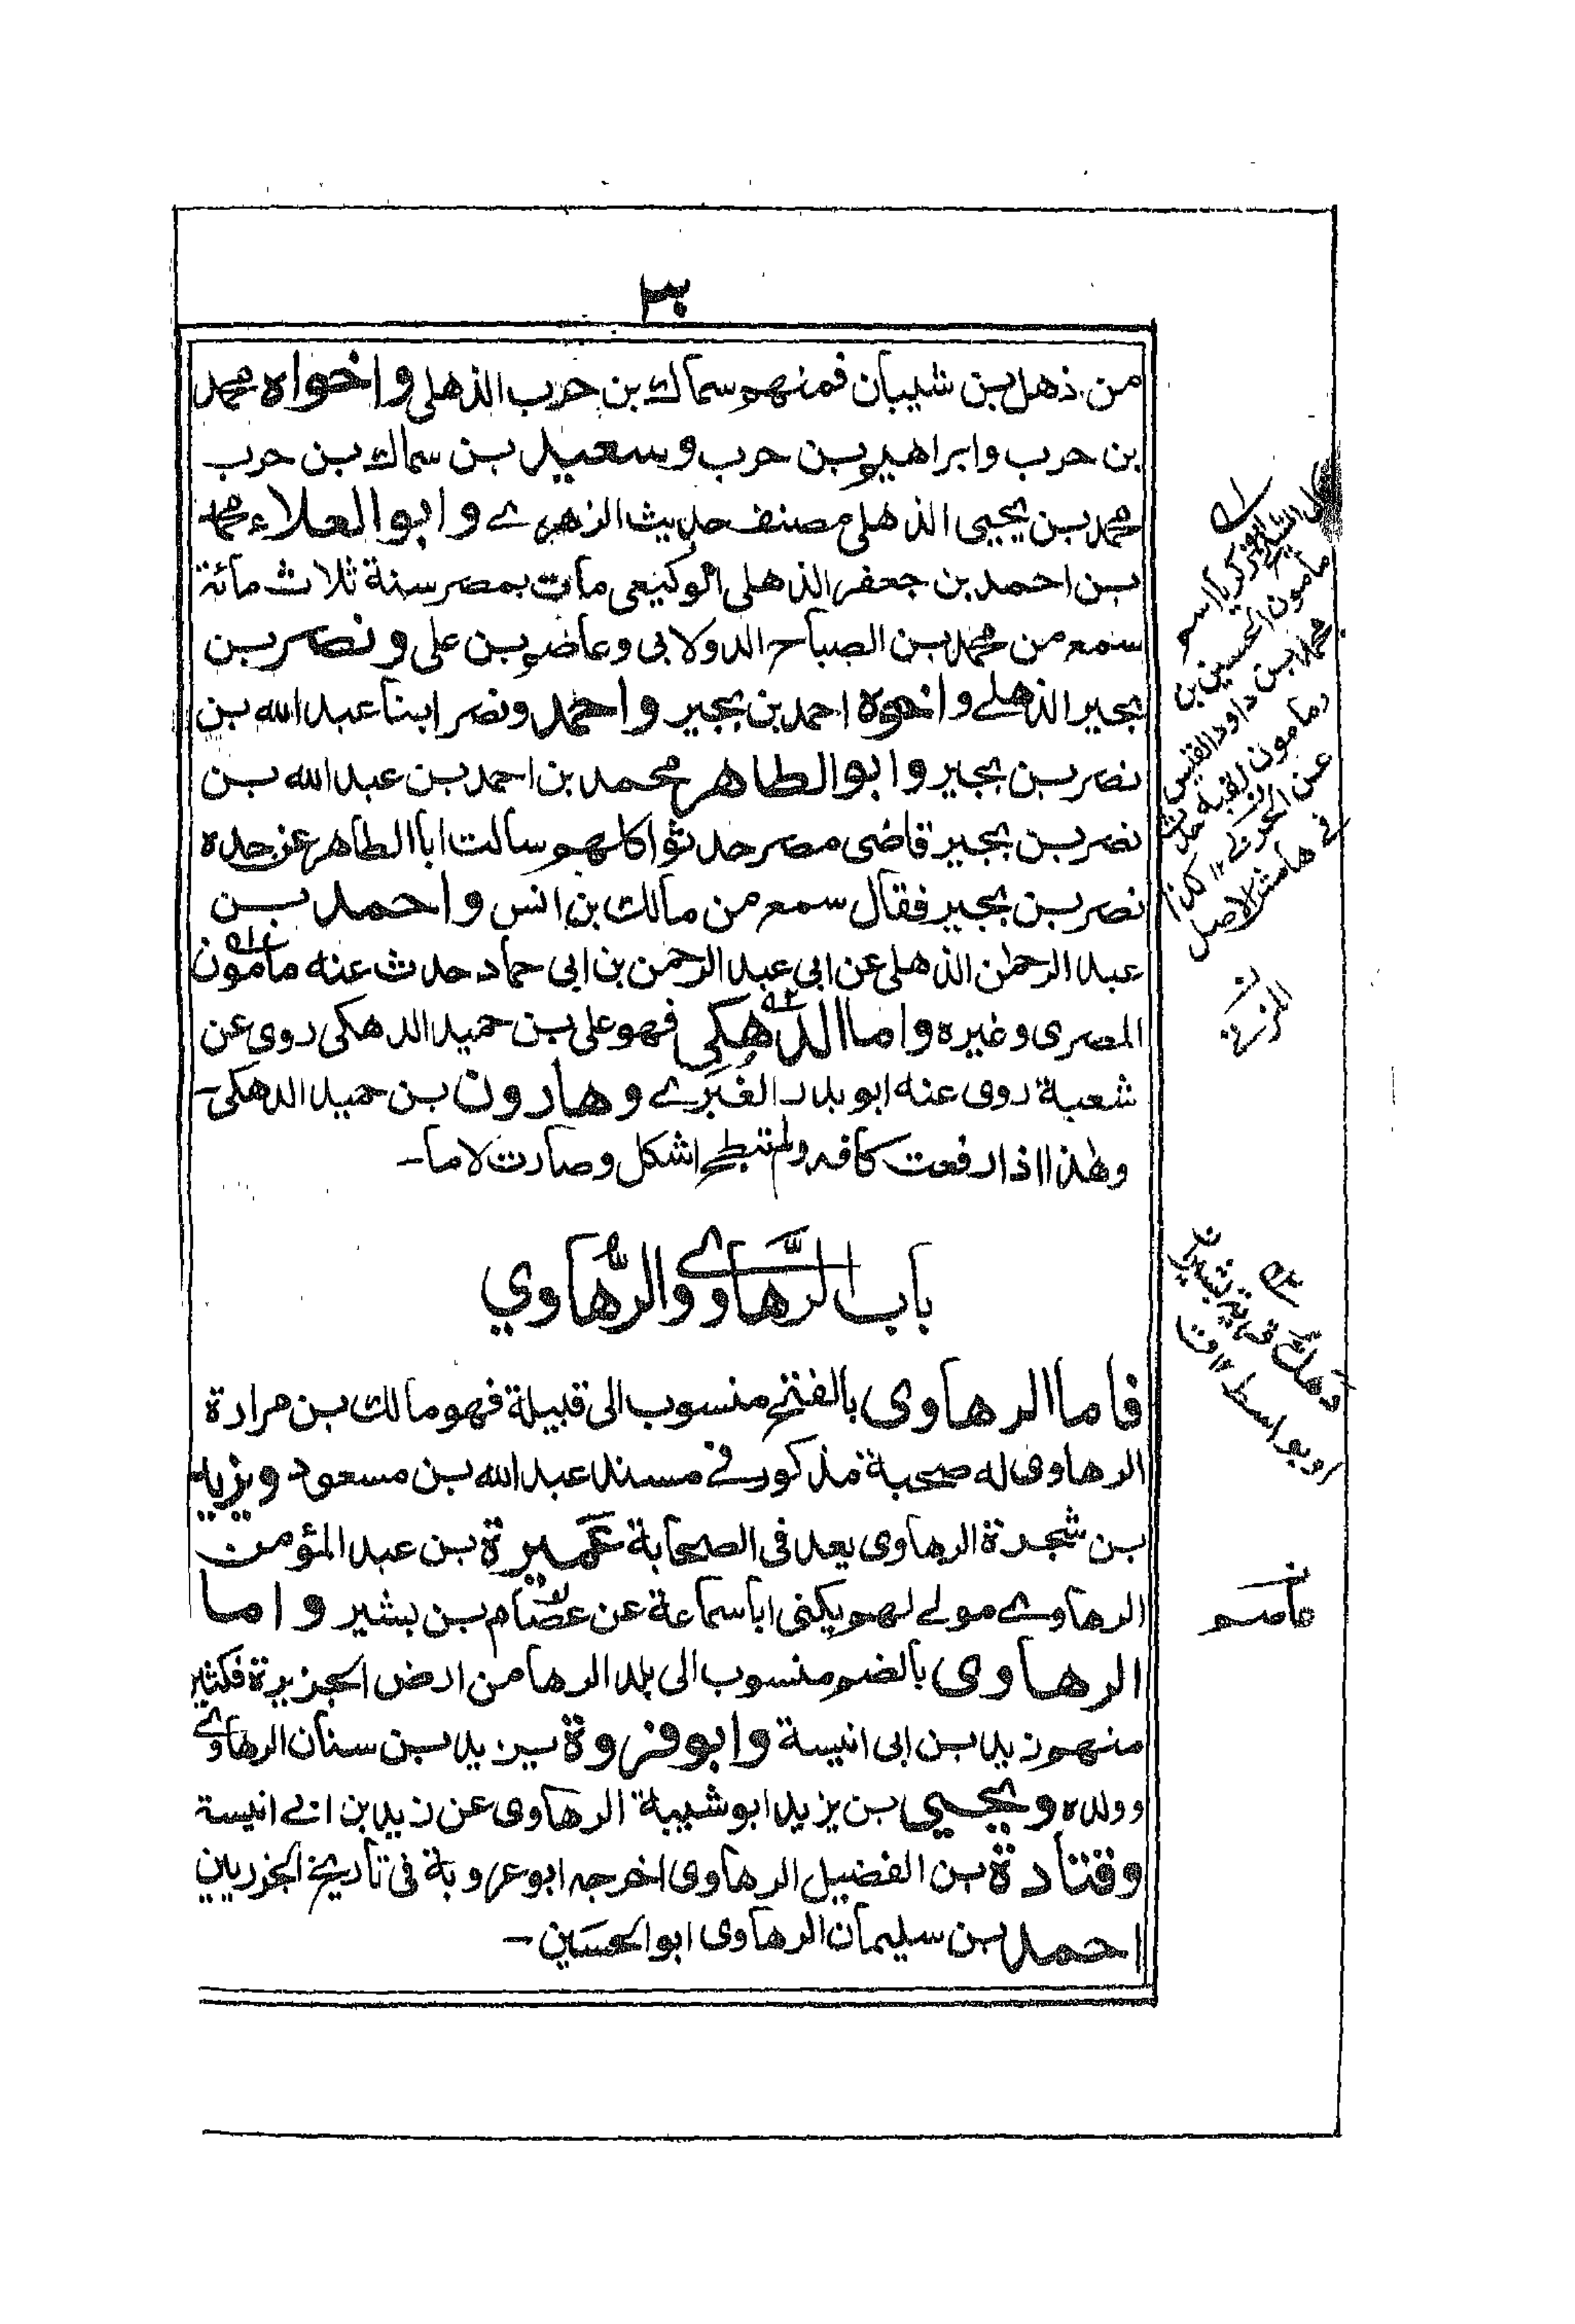 ٣٠
من ذهل بن شيبان فمنهم سماك بن حرب الذهلي واخواه محمد
بن حرب وابراهيم بن حرب وسعيد بن سماك بن حرب
محمد بن يحيى الذهلي مصنف حديث الزهرے وابوالعلاء محمد
بن احمد بن جعفر الذهلي الوكيعي مات بمصر سنة ثلاث مائة
سمع من محمد بن الصباح الدولابى وعاصم بن على ونصر بن
بجير الذهلے واخوه احمد بن بجير واحمد ونصر ابنا عبد الله بن
نصر بن بجير وابوالطاهر محمد بن احمد بن عبد الله بن
نصر بن بجير قاضى مصر حدثوا كلهم سالت ابا الطاهر عن جده
نصر بن بجير فقال سمع من مالك بن انس واحمد بن
عبد الرحمٰن الذهلى عن ابى عبد الرحمن بن ابى حماد حدث عنه مامون
المصرى وغيره واما الدَّهَكِي فهو على بن حميد الدهكى روى عن
شعبة روى عنه ابو بدر الغُبَرے وهارون بن حميد الدهكى-
وهذا اذا رفعت كافه ولم تبطح اشكل وصارت لاما-
باب الرَّهاوے والرُّهاوي
فاما الرهاوى بالفتح منسوب الى قبيلة فهو مالك بن مرارة
الرهاوى له صحبة مذكور فى مسند عبد الله بن مسعود ويزيد
بن شجرة الرهاوى يعد فى الصحابة عَمِيرة بن عبد المؤمن
الرهاوے مولے لهم يكنى ابا سماعة عن عصام بن بشير واما
الرهاوى بالضم منسوب الى بلد الرها من ارض الجزيرة فكثير
منهم زيد بن ابى انيسة وابو فروة يزيد بن سنان الرهاوے
وولده ويحيي بن يزيد ابو شيبة الرهاوى عن زيد بن ابے انيسة
وقتادة بن الفضيل الرهاوى اخرجه ابو عروبة فى تاريخ الجزريين
احمد بن سليمان الرهاوى ابو الحسين-
ابو زكريا اسمه
مامون الحسين بن
محمد بن داود القيسى
ومامون لقبه حدث
عن
فى هامش الاصل